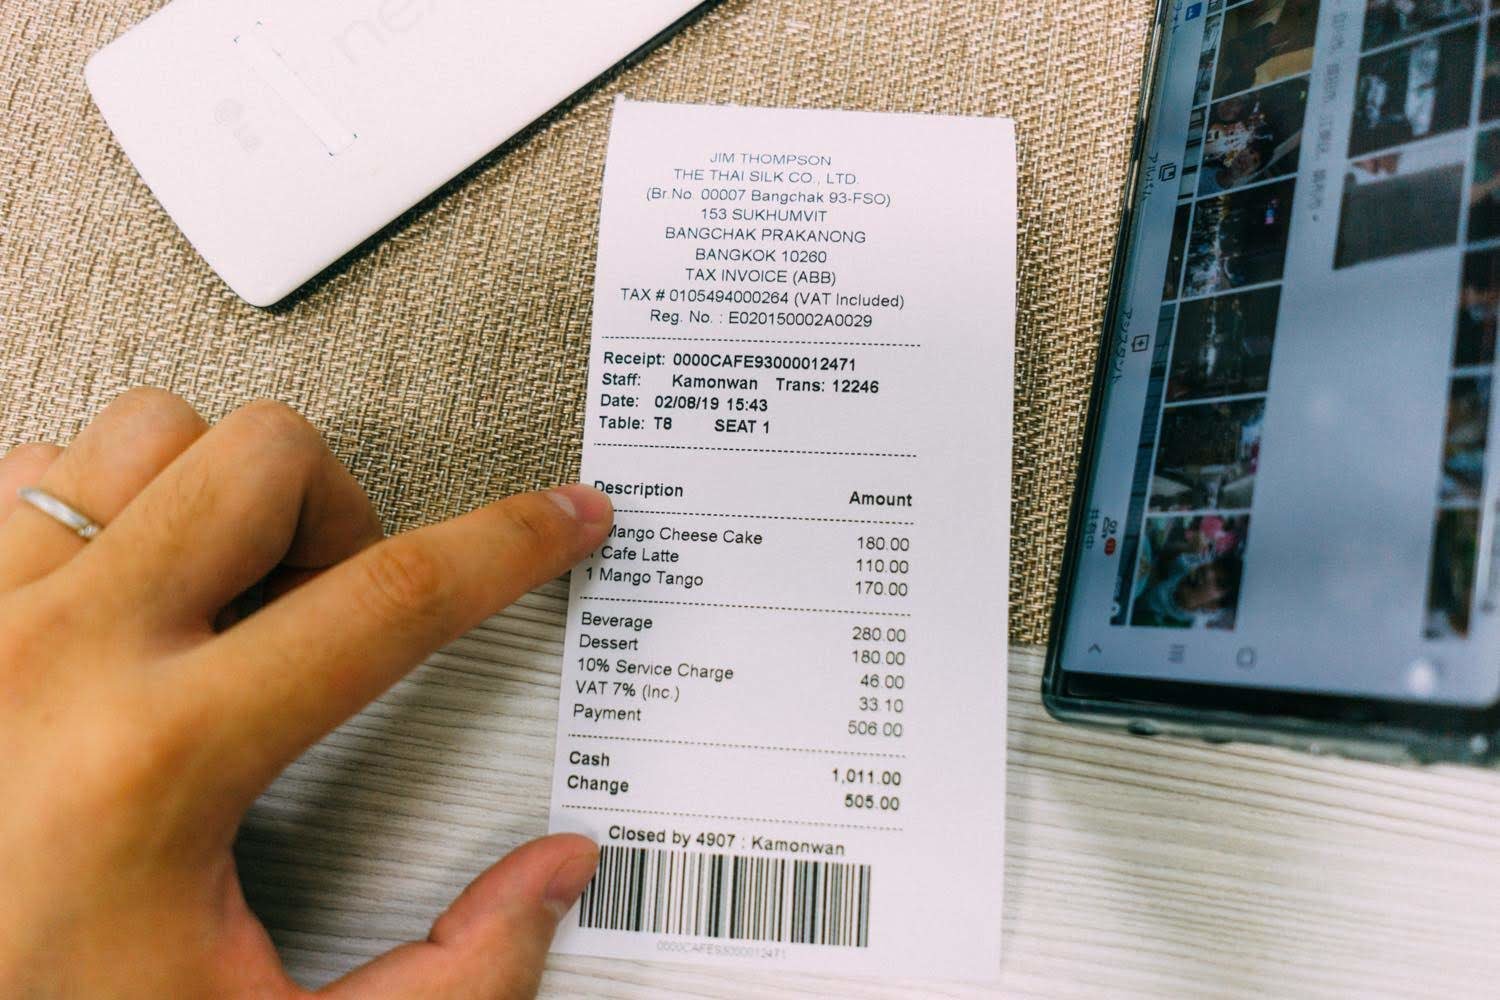 JIM THOMPSON
THE THAI SILK CO., LTD.
(Br.No. 00007 Bangchak 93-FSO)
153 SUKHUMVIT
BANGCHAK PRAKANONG
BANGKOK 10260
TAX INVOICE (ABB)
TAX # 0105494000264 (VAT Included)
Reg. No. : E020150002A0029
Receipt: 0000CAFE93000012471
Staff: Kamonwan Trans: 12246
Date: 02/08/19 15:43
Table: T8 SEAT 1
Description Amount
Mango Cheese Cake 180.00
Cafe Latte 110.00
1 Mango Tango 170.00
Beverage 280.00
Dessert 180.00
10% Service Charge 46.00
VAT 7% (Inc.) 33.10
Payment 506.00
Cash 1,011.00
Change 505.00
Closed by 4907 : Kamonwan
0000CAFE93000012471